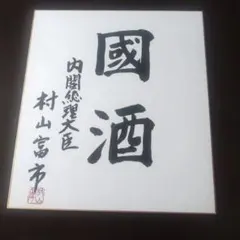 國酒
内閣総理大臣
村山富市